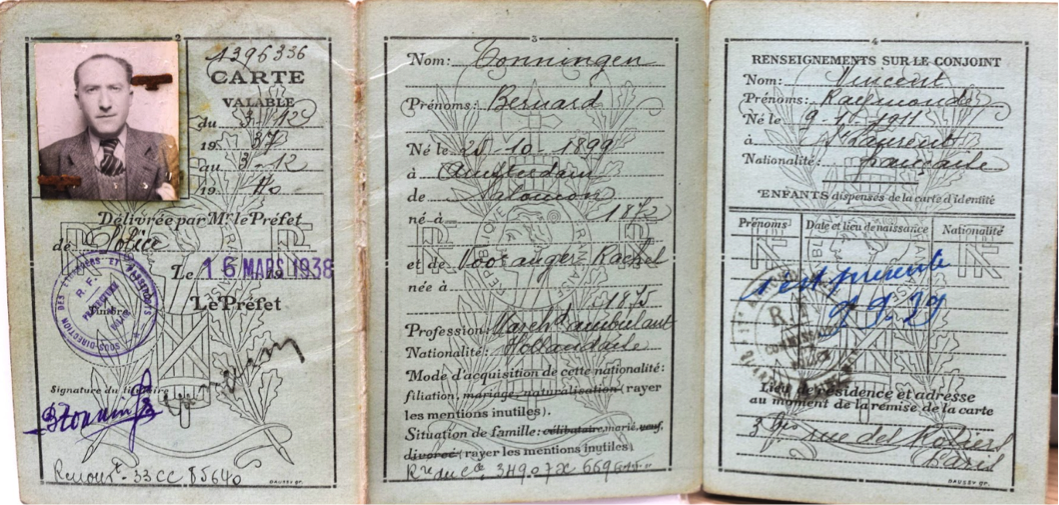 2
1396336
CARTE
VALABLE
du 3-12
19 37
au 3-12
19 40
Délivrée par Mr le Préfet
de Police
Le 16 MARS 1938
Le Préfet
Timbre
SOUS-DIRECTION DES ÉTRANGERS ET PASSEPORTS
R.F.
Signature du titulaire
DAUSSY gr.
3
Nom: Tonningen
Prénoms: Bernard
Né le 20-10-1899
à Amsterdam
de Salomon
né à 1872
et de Vooranger Rachel
née à
1875
Profession: March d ambulant
Nationalité: Hollandaise
Mode d'acquisition de cette nationalité:
filiation, mariage, naturalisation (rayer
les mentions inutiles).
Situation de famille: célibataire, marié, veuf,
divorcé (rayer les mentions inutiles)
4
RENSEIGNEMENTS SUR LE CONJOINT
Nom: Vincent
Prénoms: Raymonde
Né le 1911
à St Laurent
Nationalité: française
ENFANTS dispensés de la carte d'identité
Prénoms Date et lieu de naissance Nationalité
s'est présenté
R.F
Lieu de résidence et adresse
au moment de la remise de la carte
3 bis rue des Rosiers
Paris
DAUSSY gr.